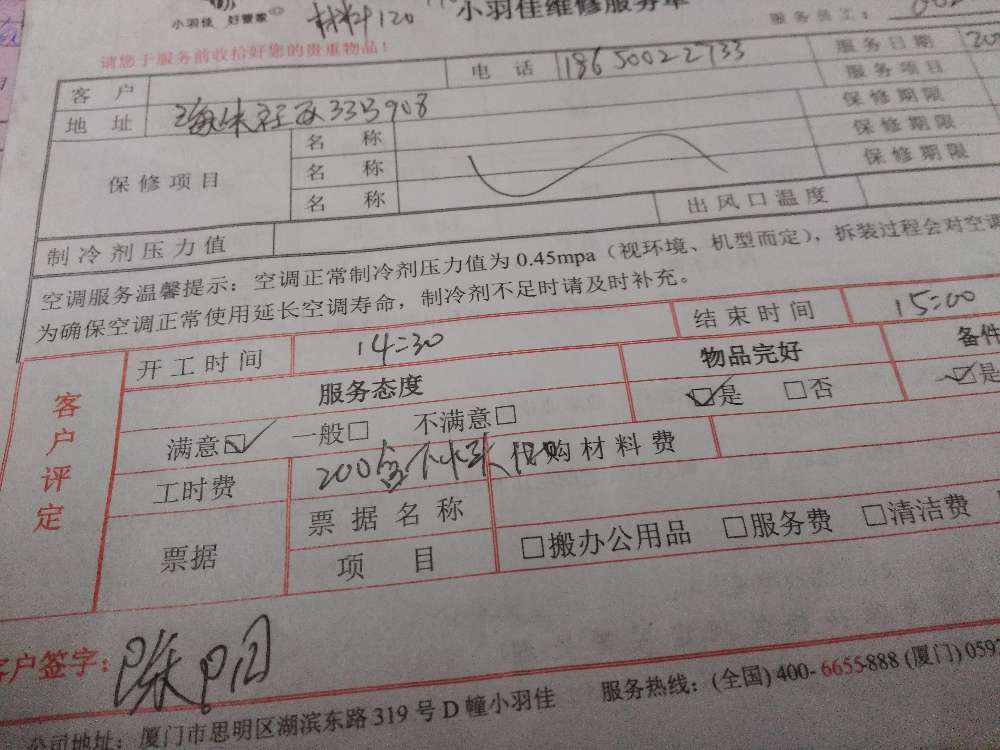 小羽佳 好管家 材料120 小羽佳维修服务单
服务员工:
请您于服务前收拾好您的贵重物品!
客户 电话 18650022733 服务日期
服务项目
地址 33号908 保修期限
保修项目 名称 保修期限
名称 保修期限
名称
制冷剂压力值 出风口温度
空调服务温馨提示：空调正常制冷剂压力值为0.45mpa（视环境、机型而定），拆装过程会对空调
为确保空调正常使用延长空调寿命，制冷剂不足时请及时补充。
客户评定
开工时间 14:30 结束时间 15:00
服务态度 物品完好 备件
满意☑ 一般□ 不满意□ ☑是 □否 ☑是
工时费 200含下水 代购材料费
票据 票据名称
项目 □搬办公用品 □服务费 □清洁费
客户签字: 陈阳
公司地址: 厦门市思明区湖滨东路319号D幢小羽佳 服务热线: (全国) 400-6655-888 (厦门) 0592